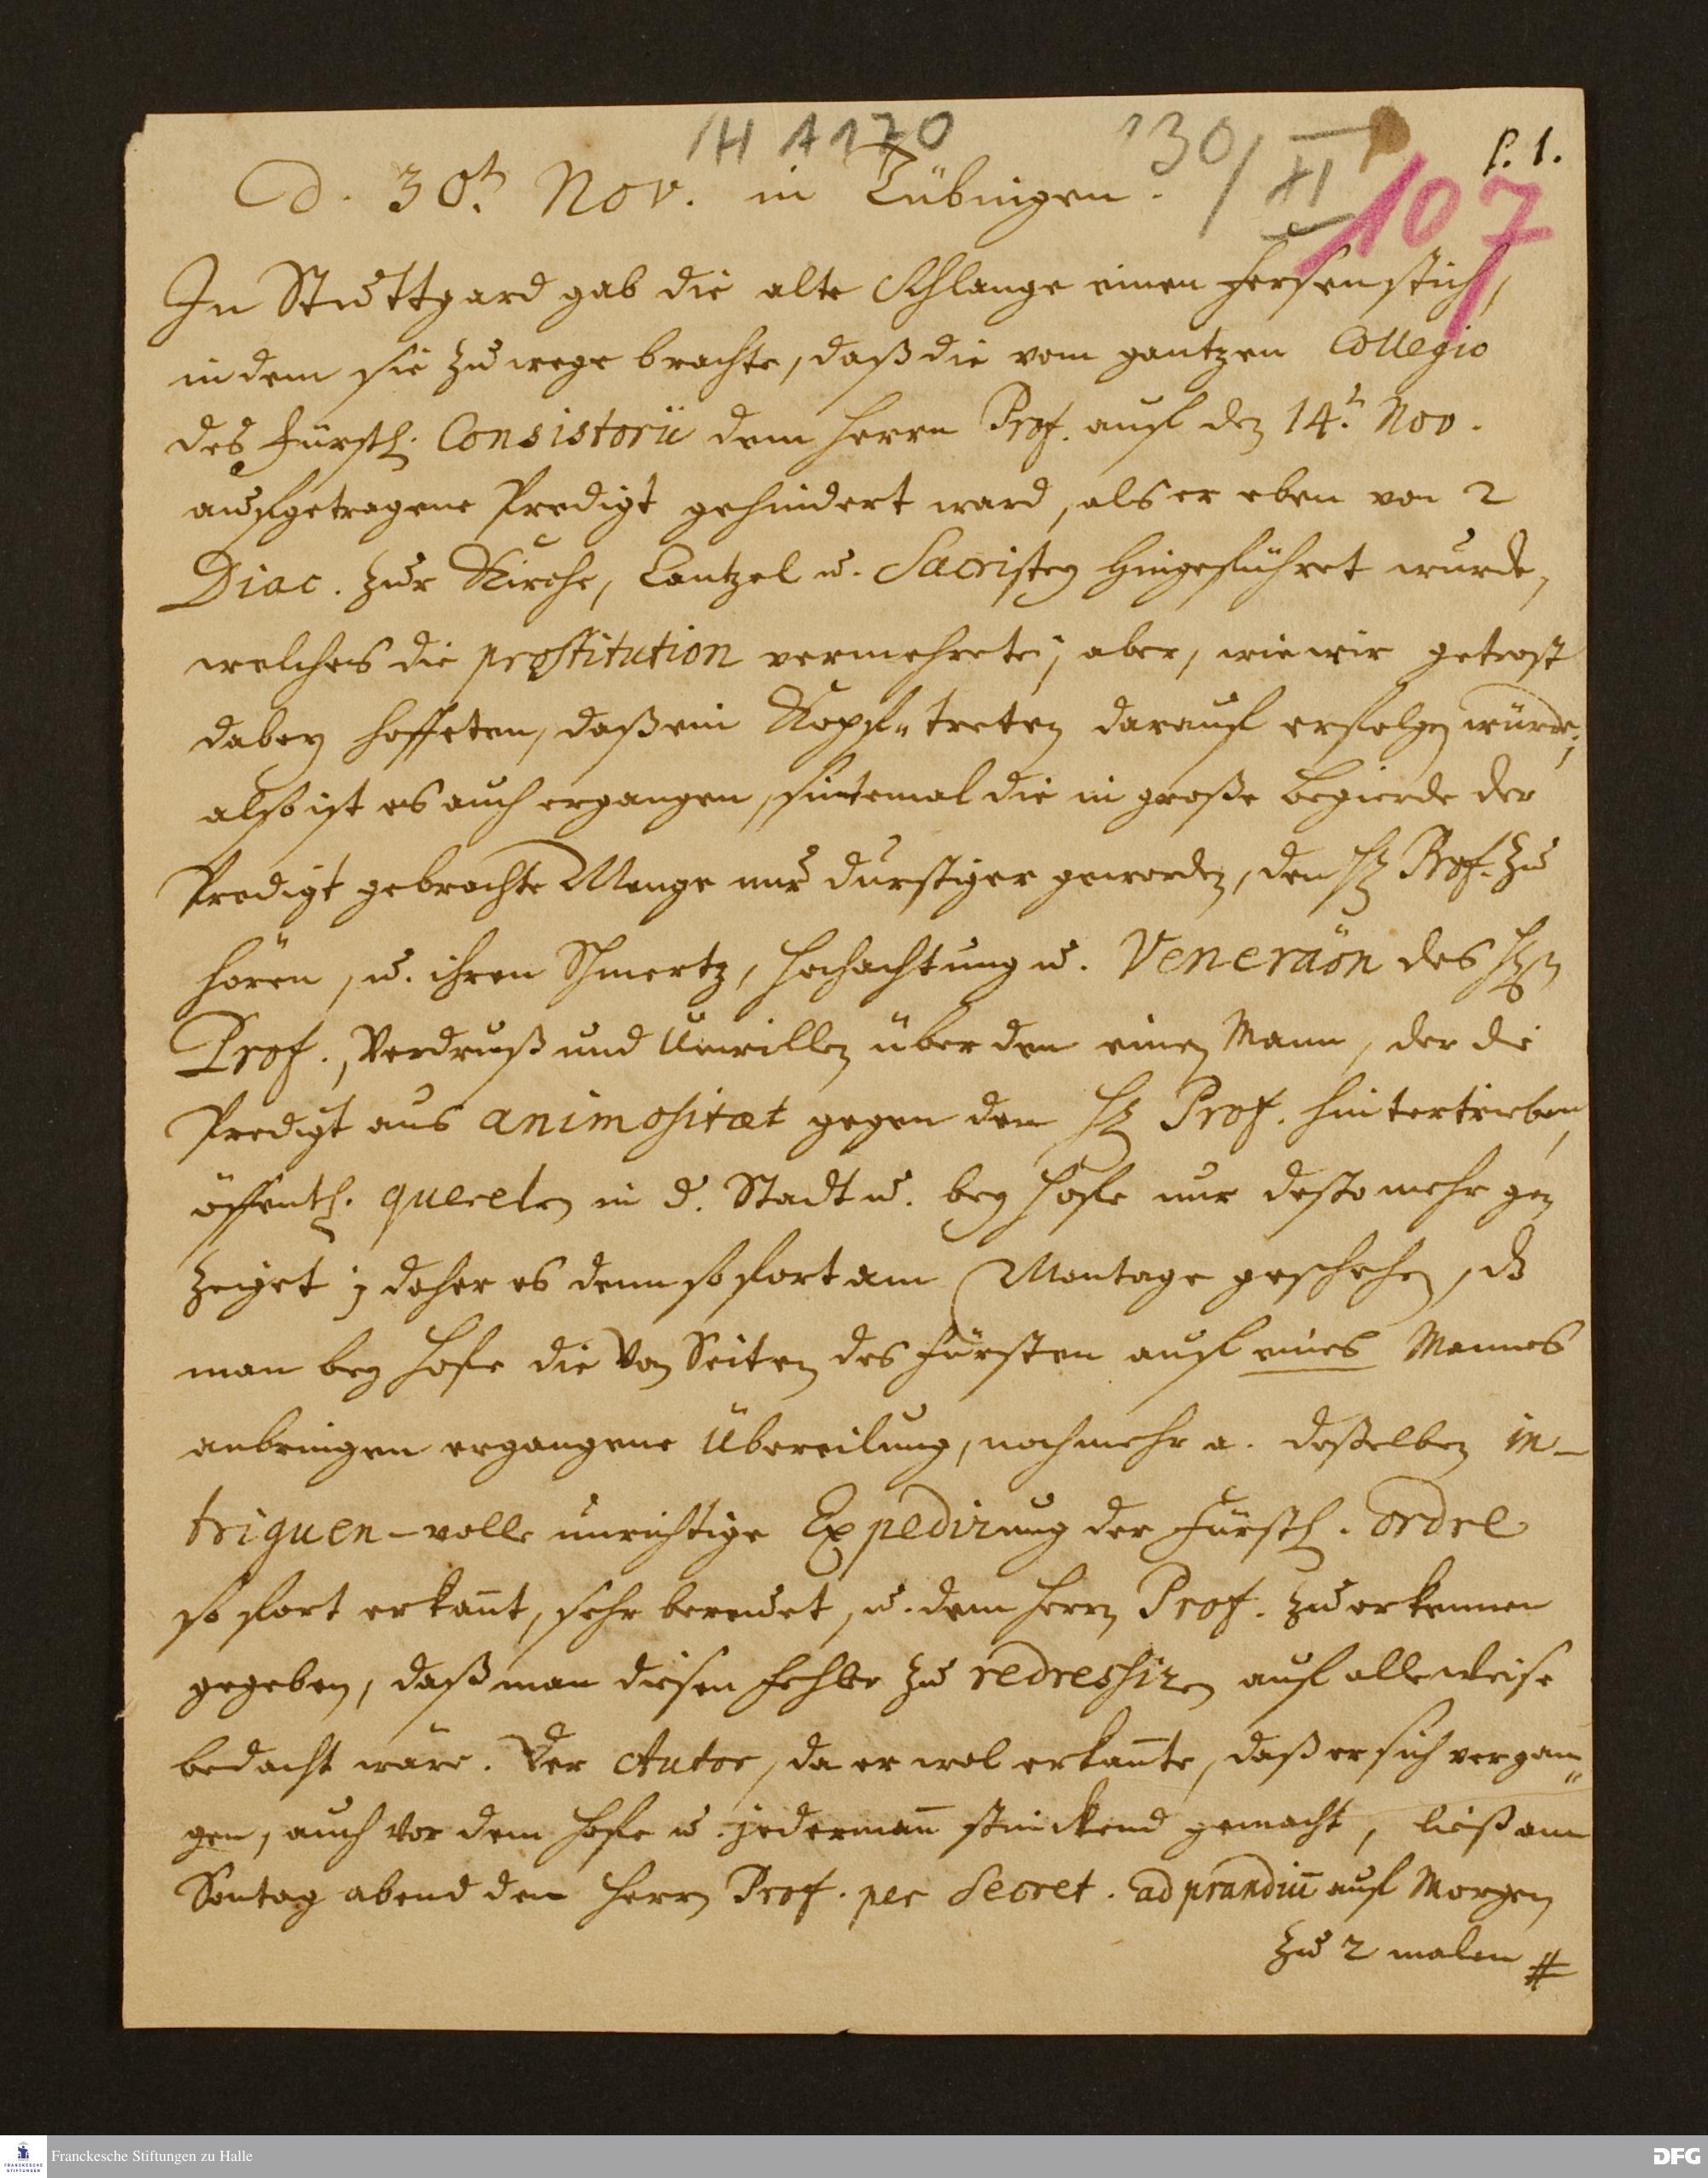 /H A 170
130/XI
p. 1.
107
d. 30t. Nov. in Tübingen.
In Stuttgard gab die alte Schlange einen Fersenstich,
indem sie zu wege brachte, daß die vom gantzen Collegio
des Fürstl. Consistorii dem Herrn Prof. auf den 14t. Nov.
aufgetragene Predigt gehindert ward, als er eben von 2
Diac. zur Kirche, Cantzel u. Sacristey hingeführet wurde,
welches die prostitution vermehrete; aber, wie wir getrost
dabey hoffeten, daß ein Kopf-treten darauf erfolgen würde;
also ist es auch ergangen, sintemal die in große Begierde der
Predigt gebrachte Menge nur durstiger geworden, den H. Prof. zu
hören, u. ihren Schmertz, Hochachtung u. Veneraön des Hn
Prof., Verdruß und Unwillen über den einen Mann, der die
Predigt aus animositæt gegen den H. Prof. hintertrieben,
öffentl. queeln in d. Stadt u. bey Hofe nur desto mehr ge
zeiget; daher es denn so fort am Montage geschehen, dß
man bey Hofe die von Seiten des Fürsten auf eines Mannes
anbringen ergangene Übereilung, noch mehr a. deßelben in-
triguen-volle unrichtige Expedirung der Fürstl. Ordre
so fort erkañt, sehr bereuet, u. dem Herrn Prof. zu erkennen
gegeben, daß man diesen Fehler zu redressiren auf alle Weise
bedacht wäre. Der Autor, da er wol erkañte, daß er sich vergan-
gen, auch vor dem Hofe u. jedermañ stinckend gemacht, ließ am
Sontag abend den Herrn Prof. per Secret. ad prandiū auf Morgen
zu 2 malen #
Franckesche Stiftungen zu Halle
FRANCKESCHE STIFTUNGEN
DFG